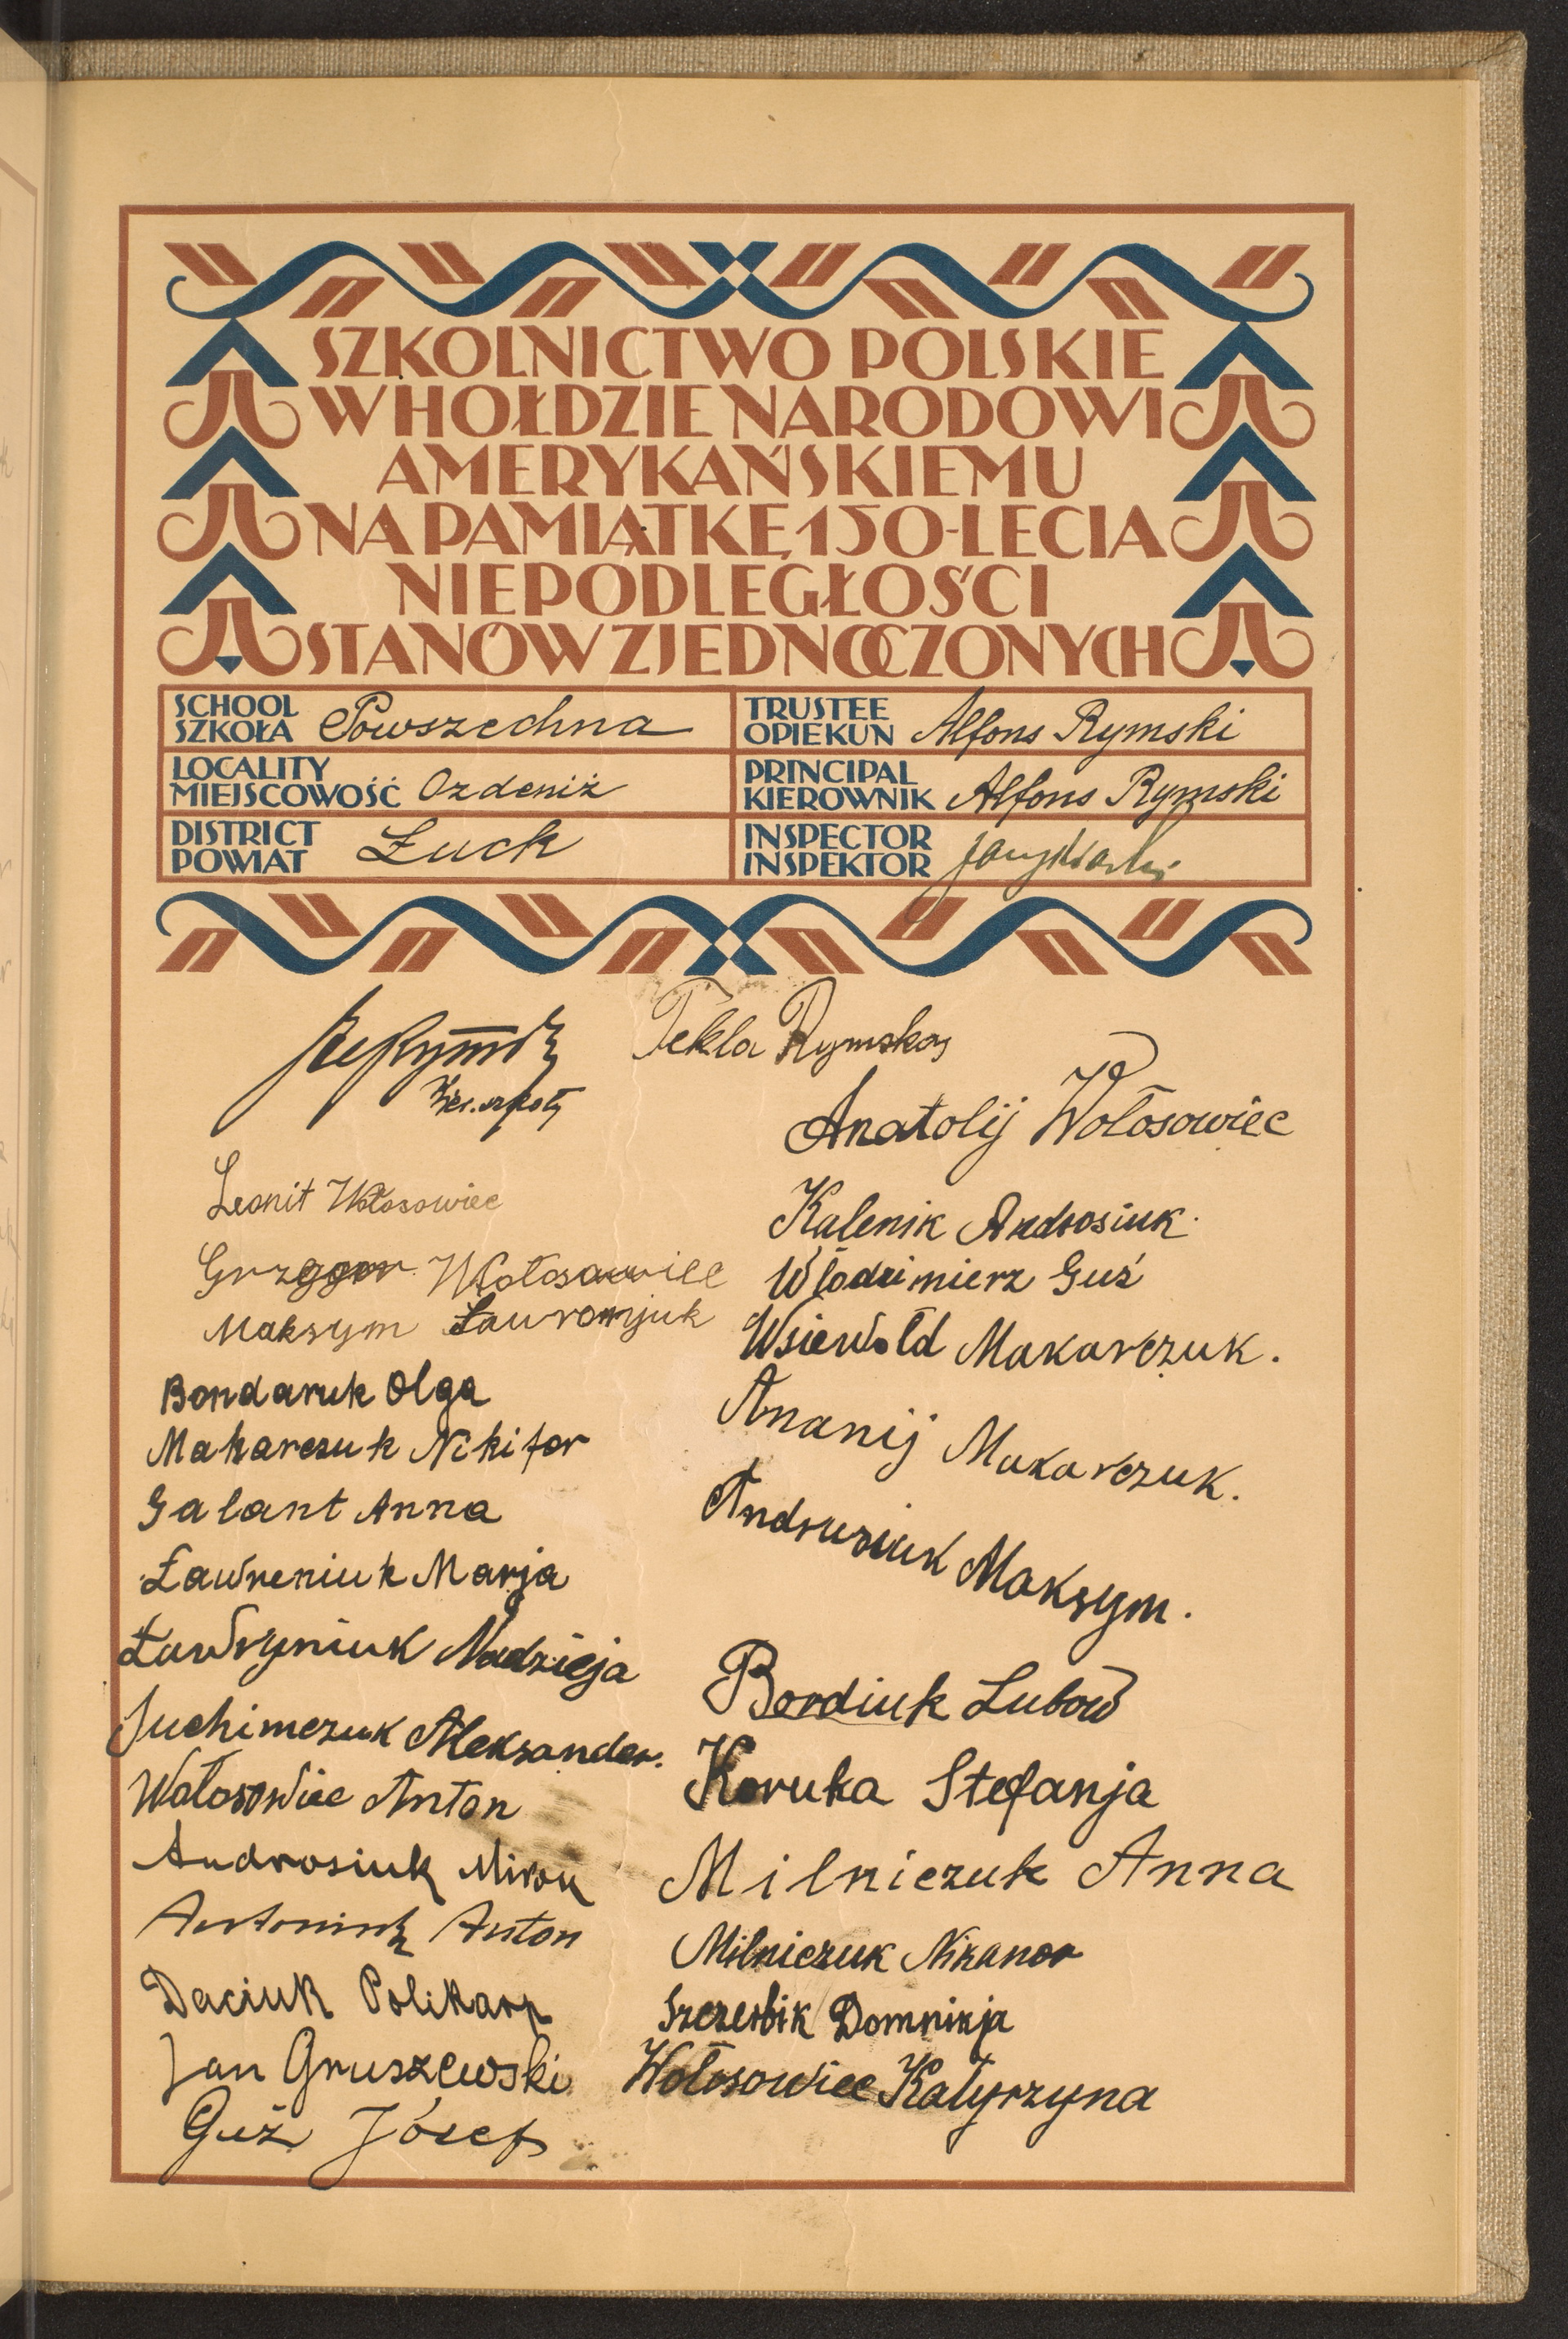 SZKOLNICTWO POLSKIE
W HOŁDZIE NARODOWI
AMERYKAŃSKIEMU
NA PAMIĄTKĘ 150-LECIA
NIEPODLEGŁOŚCI
STANÓW ZJEDNOCZONYCH
SCHOOL
SZKOŁA Powszechna
TRUSTEE
OPIEKUN Alfons Rymski
LOCALITY
MIEJSCOWOŚĆ Ozdeniż
PRINCIPAL
KIEROWNIK Alfons Rymski
DISTRICT
POWIAT Łuck
INSPECTOR
INSPEKTOR
Kier. szkoły
Tekla Rymska
Anatolij Wołosowiec
Leonit Wołosowiec
Kalenik Androsiuk.
Grzegor Wołosowiec
Włodzimierz Guś
Maksym Ławromjuk
Wsiewołd Makarczuk.
Bondaruk Olga
Ananij Makarczuk.
Makarczuk Nikifor
Galant Anna
Andrusiuk Maksym.
Ławreniuk Marja
Ławryniuk Nadzieja
Bordiuk Lubow
Juchimczuk Aleksander.
Koruka Stefanja
Wołosowiec Anton
Androsiuk Miron
Milniczuk Anna
Antoniuk Anton
Milniczuk Nikanor
Daciuk Polikarp
Szczerbik Domnikja
Jan Gruszewski
Wołosowiec Katyrzyna
Guż Józef